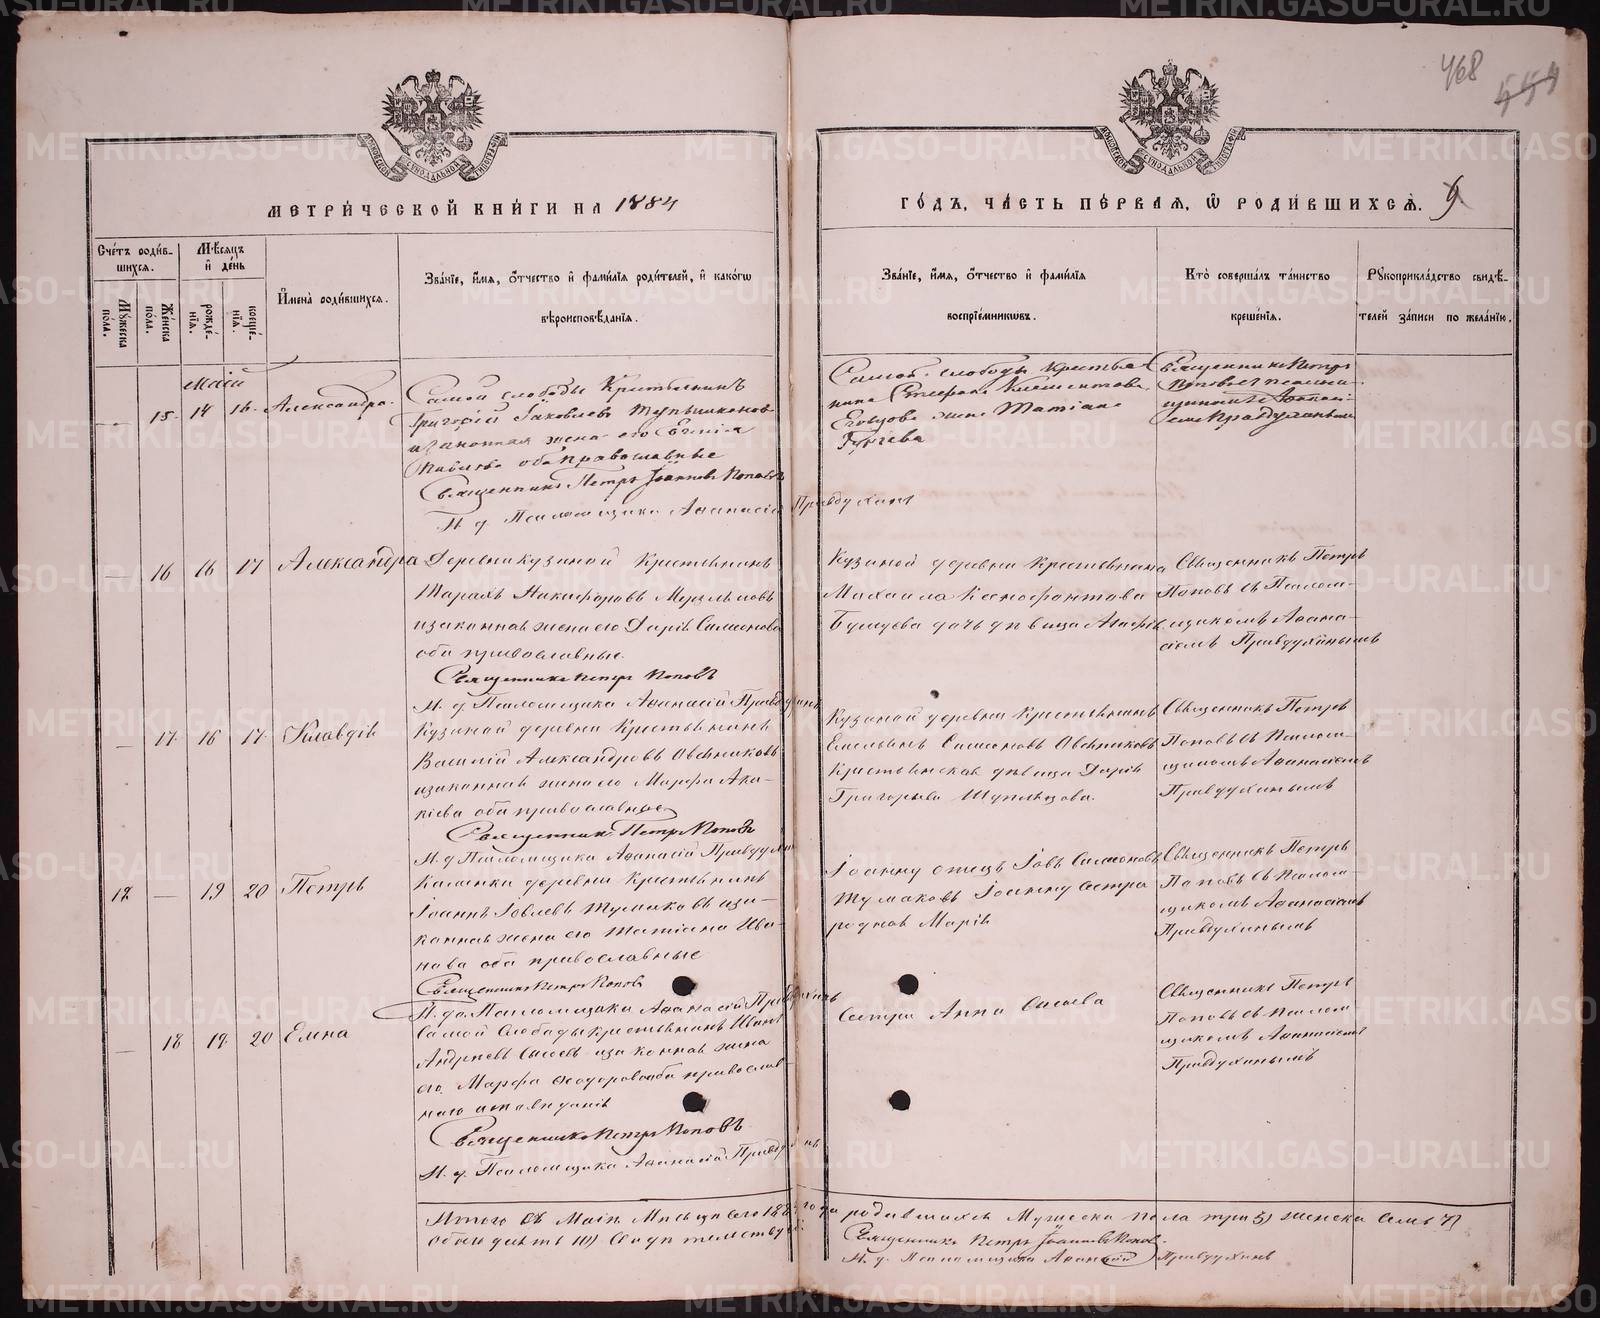 468
МЕТРИ́ЧЕСКОЙ КНИ́ГИ НА 1884
ГО́ДЪ, ЧА́СТЬ ПЕ́РВАЯ, Ѡ РОДИ́ВШИХСЯ.
Сче́тъ роди́вшихся.
Му́жеска по́ла.
Же́нска по́ла.
Мѣ́сяцъ и де́нь
рожде́нїя.
креще́нїя.
И҆мена̀ роди́вшихся.
Зва́нїе, и҆́мя, ѻ҆́тчество и҆ фами́лїя роди́телей, и҆ како́гѡ вѣроисповѣ́данїя.
Зва́нїе, и҆́мя, ѻ҆́тчество и҆ фами́лїя воспрїе́мникѡвъ.
Кто̀ соверша́лъ та́инство креще́нїя.
Рꙋкоприкла́дство свидѣ́телей за́писи по жела́нїю.
Маій
— 15 14 16 Александра
Самой слободы Крестьянинъ
Григорій Іаковлевъ
и законная жена его
оба православные
Священникъ Петръ Іоанновъ Поповъ
И. д. Псаломщика Аѳанасій Правдухинъ
Самой слободы Крестья-
нина Стефана Климентова
жена Татіана
Священникъ Петръ
Поповъ с псалом-
щикомъ Аѳанасі-
емъ Правдухинымъ
— 16 16 17 Александра
Деревни Кузиной Крестьянинъ
Тарахъ Никифоровъ Мерзляковъ
и законная жена его Дарія Симеонова
оба православные.
Священникъ Петръ Поповъ
И. д. Псаломщика Аѳанасій Правдухинъ
Кузиной деревни Крестьянина
Михаила Ксенофонтова
дочь девица Агафія
Священникъ Петръ
Поповъ съ Псалом-
щикомъ Аѳана-
сіемъ Правдухинымъ
— 17 16 17 Клавдія
Кузиной деревни Крестьянинъ
Василій Александровъ Овсянниковъ
и законная жена его Марѳа Ака-
кіева оба православные
Священникъ Петръ Поповъ
И. д. Псаломщика Аѳанасій Правдухинъ
Кузиной деревни Крестьянинъ
Емельянъ Симеоновъ Овсянниковъ
Крестьянская девица Дарія
Григорьева
Священникъ Петръ
Поповъ съ Псалом-
щикомъ Аѳанасіемъ
Правдухинымъ
12 — 19 20 Петръ
деревни Крестьянинъ
Іоаннъ Іовлевъ Тумаковъ и за-
конная жена его Татіана Ива-
нова оба православные
Священникъ Петръ Поповъ
И. д. Псаломщика Аѳанасій Правдухинъ
Іоанну отецъ Іовъ Симеоновъ
Тумаковъ Іоанну сестра
родная Марія
Священникъ Петръ
Поповъ съ Псалом-
щикомъ Аѳанасіемъ
Правдухинымъ
— 18 19 20 Елена
Самой Слободы Крестьянинъ Иванъ
Андреевъ Сысоевъ и законная жена
его Марѳа Ѳеодорова оба православ-
наго исповеданія
Священникъ Петръ Поповъ
И. д. Псаломщика Аѳанасій Правдухинъ
Сестра Анна Сысоева
Священникъ Петръ
Поповъ съ Псалом-
щикомъ Аѳанасіемъ
Правдухинымъ
Итого въ Маіѣ Месяцѣ сего 1884 года родившихся Мужеска пола три 3) женска семь 7)
обоего десять 10) Свидетельствуемъ
Священникъ Петръ Іоанновъ Поповъ.
И. д. Псаломщика Аѳанасій Правдухинъ
METRIKI.GASO-URAL.RU